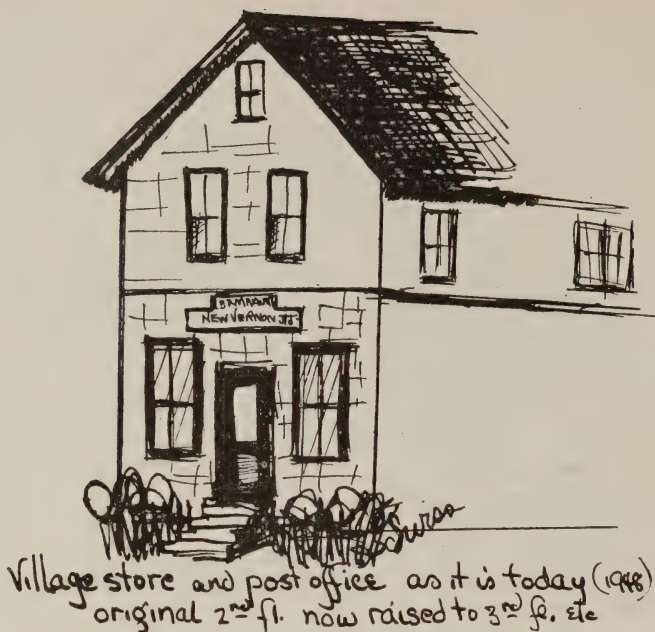 NEW VERNON
Village store and post office as it is today (1948)
original 2nd fl. now raised to 3rd fl. etc